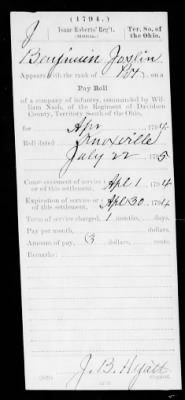 (1794.)
J Isaac Roberts' Reg't. Ter. So. of the Ohio.
Benjamin Joslin
Appears with the rank of Pvt. on a
Pay Roll
of a company of infantry, commanded by William Nash, of the Regiment of Davidson County, Territory South of the Ohio,
for Apr, 1794.
Roll dated Knoxville
July 22, 1795
Commencement of service or of this settlement, Apl. 1, 1794
Expiration of service or of this settlement, Apl. 30, 1794
Term of service charged, 1 months, days.
Pay per month, dollars.
Amount of pay, 3 dollars, cents.
Remarks:
J. B. Hyatt
Copyist.